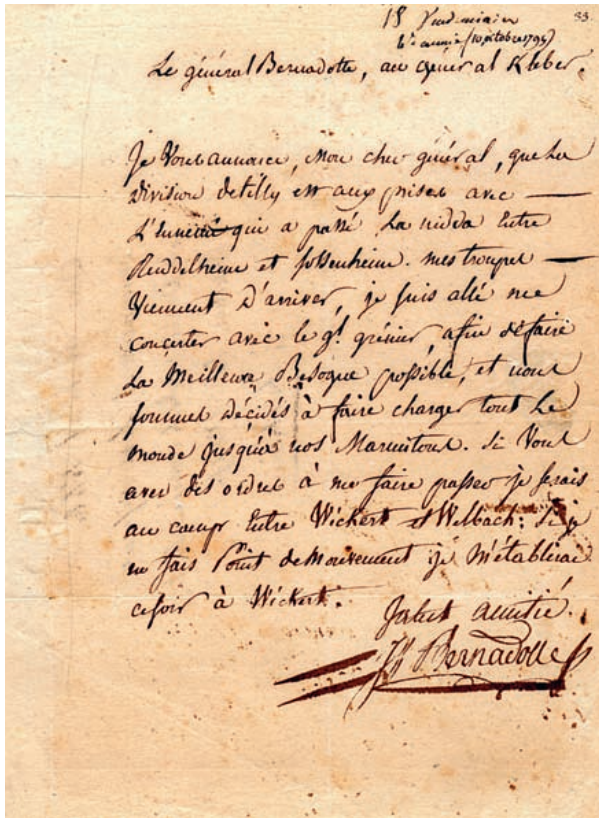 18 Vendemiaire 33.
4e année (10 octobre 1795)
Le général Bernadotte, au général Kleber.
Je Vous annonce, Mon cher général, que La
Division de tilly est aux prises avec —
L'ennemi qui a passé La nidda Entre
Reuddelheim et sossenheim. mes troupes —
Viennent D'arriver, je suis allé me
concerter avec le gl. grénier, afin de faire
La Meilleure Besogne possible, et nous
sommes décidés à faire charger tout Le
monde jusqu'à nos Marmitons. Si Vous
avez des ordres à me faire passer je serais
au camp Entre Wickert et Welbach; Si je
ne fais Point de Mouvement je M'établirai
ce soir à Wickert.
Salut amitié.
Bernadotte